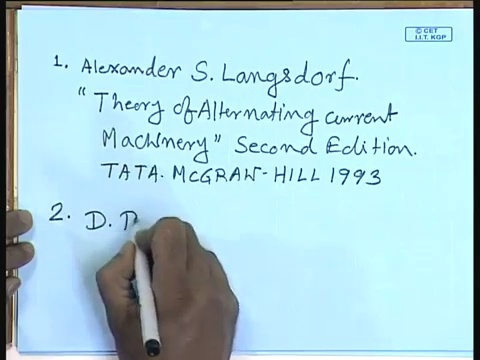 © CET
I.I.T. KGP
1. Alexander S. Langsdorf.
"Theory of Alternating current
Machinery" Second Edition.
TATA. McGRAW-HILL 1993
2. D.